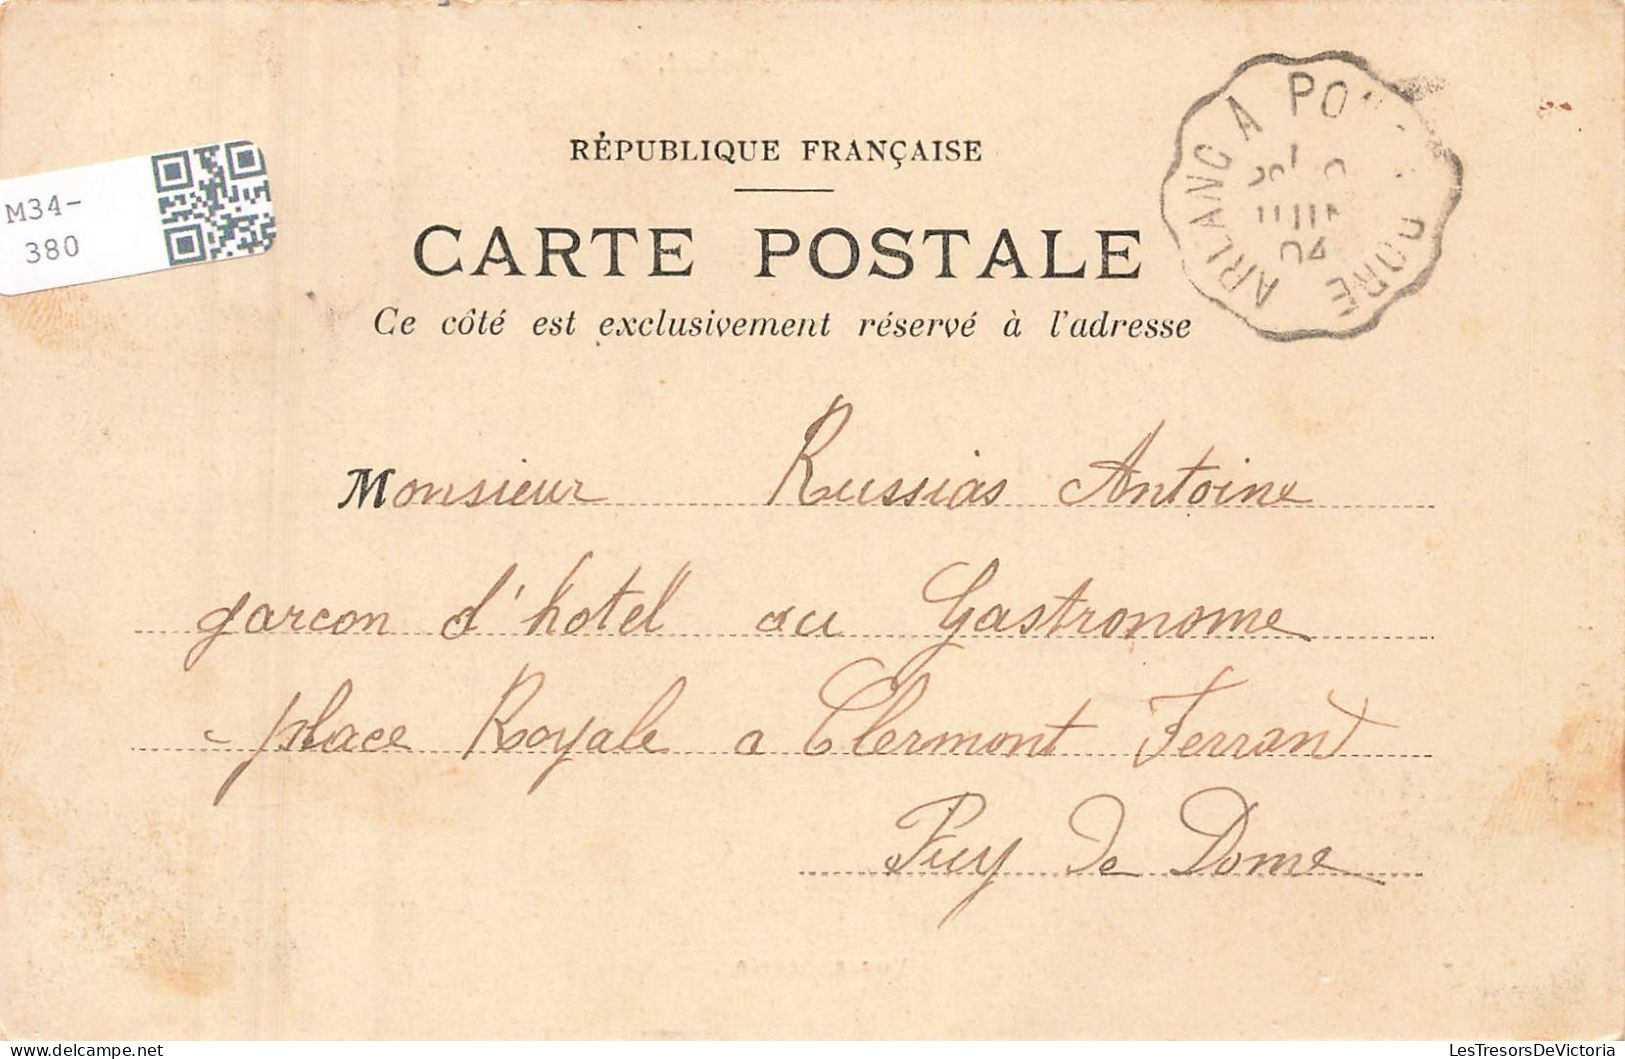 RÉPUBLIQUE FRANÇAISE
CARTE POSTALE
Ce côté est exclusivement réservé à l'adresse
M34-
380
ARLANC A DORE
04
Monsieur Russias Antoine
garcon d'hotel au Gastronome
place Royale a Clermont Ferrant
Puy de Dome
LesTresorsDeVictoria
delcampe.net